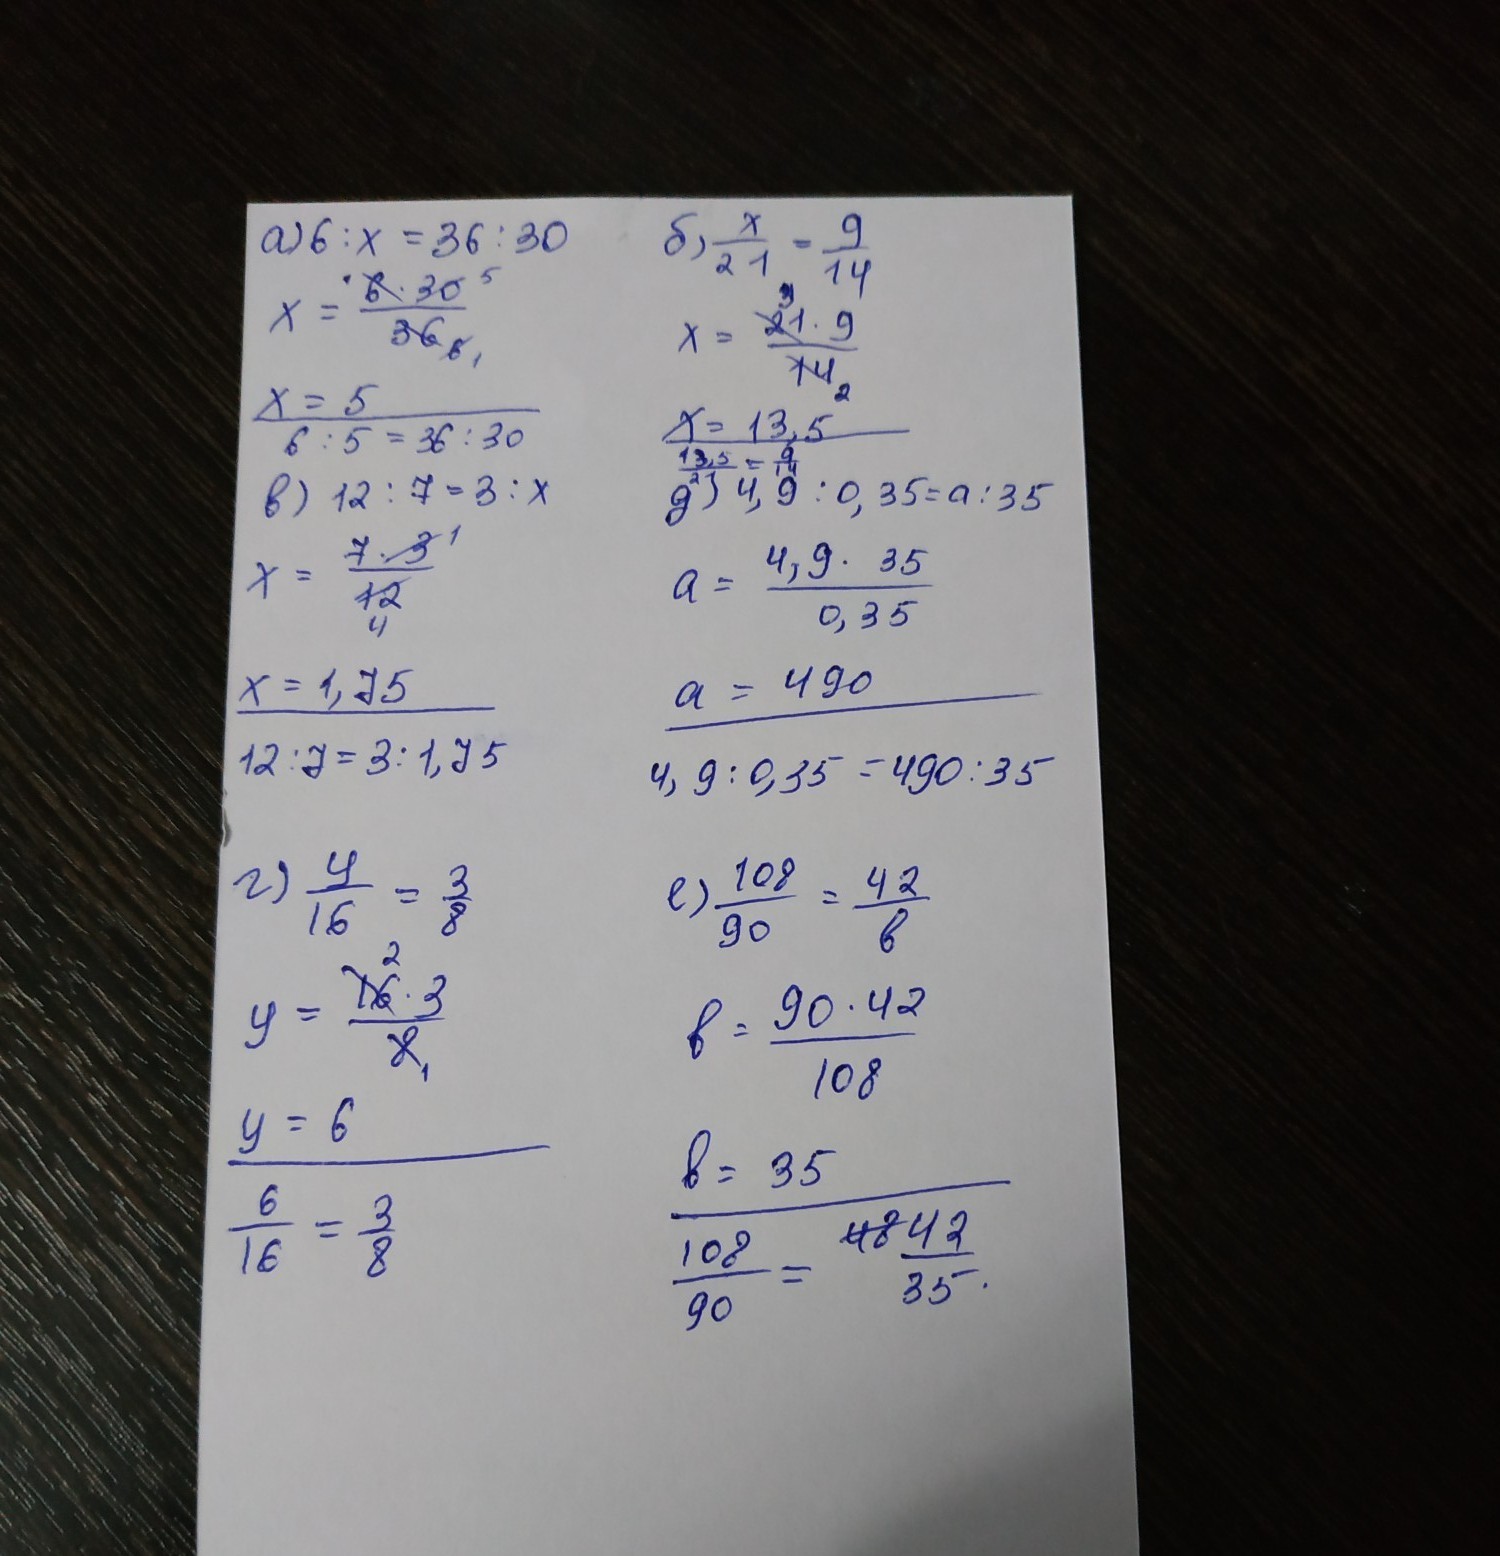 а) 6 : x = 36 : 30
x = 6 · 30 5 / 36 6 1
x = 5
6 : 5 = 36 : 30
в) 12 : 7 = 3 : x
x = 7 · 3 1 / 12 4
x = 1,75
12 : 7 = 3 : 1,75
г) y/16 = 3/8
y = 16 2 · 3 / 8 1
y = 6
6/16 = 3/8
б) x/21 = 9/14
x = 3 21 · 9 / 14 2
x = 13,5
13,5/21 = 9/14
д) 4,9 : 0,35 = a : 35
a = 4,9 · 35 / 0,35
a = 490
4,9 : 0,35 = 490 : 35
е) 108/90 = 42/в
в = 90 · 42 / 108
в = 35
108/90 = 48 42/35.